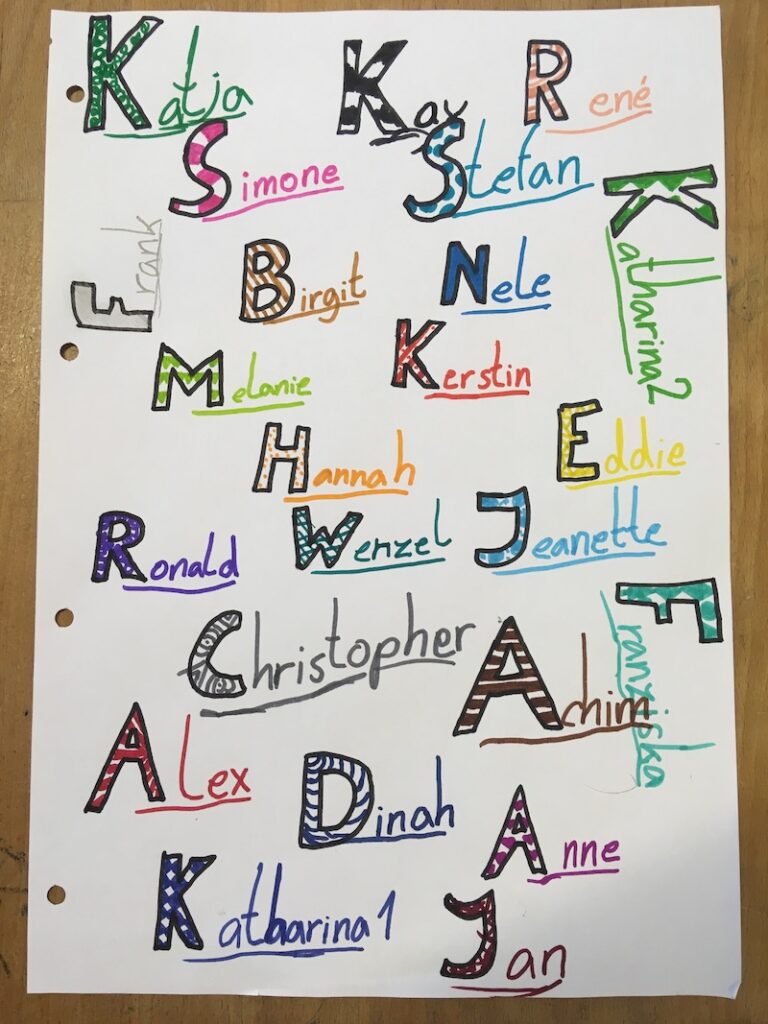 Katja
Kay
René
Simone
Stefan
Katharina2
Frank
Birgit
Nele
Melanie
Kerstin
Hannah
Eddie
Ronald
Wenzel
Jeanette
Christopher
Achim
Franziska
Alex
Dinah
Anne
Katharina1
Jan